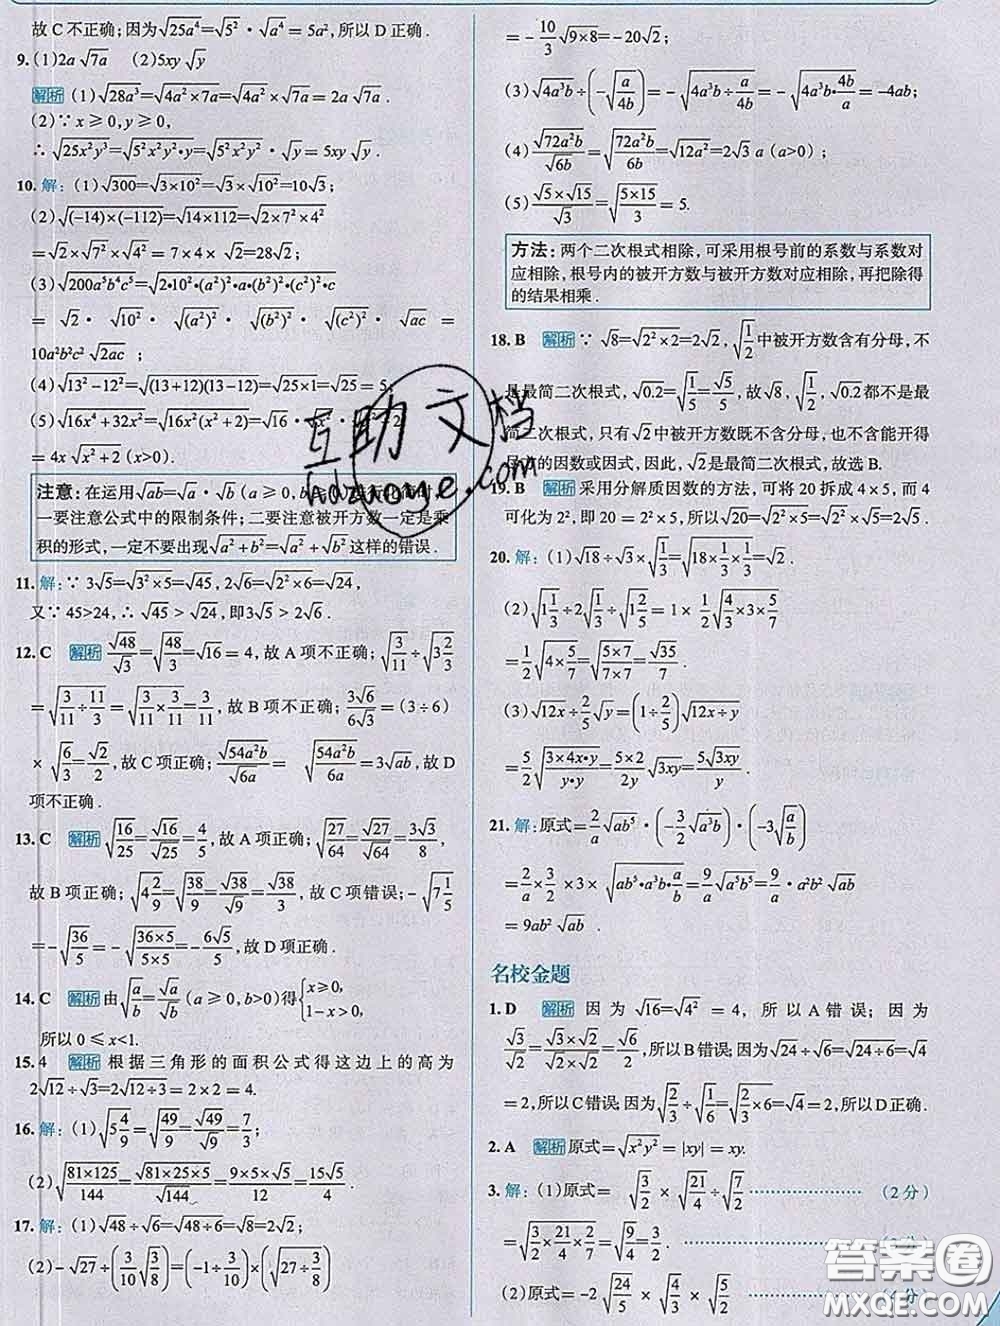 故 C 不正确；因为√25a⁴=√5²·√a⁴=5a²,所以 D 正确.
9. (1)2a√7a (2)5xy√y
解析 (1)√28a³=√4a²×7a=√4a²×√7a=2a√7a.
(2)∵x≥0,y≥0,
∴√25x²y³=√5²x²y²·y=√5²x²y²·√y=5xy√y.
10. 解：(1)√300=√3×10²=√3×√10²=10√3；
(2)√(-14)×(-112)=√14×112=√2×7²×4²
=√2×√7²×√4²=7×4×√2=28√2；
(3)√200a⁵b⁴c⁵=√2·10²·(a²)²·a·(b²)²·(c²)²·c
=√2·√10²·√(a²)²·√(b²)²·√(c²)²·√ac=
10a²b²c²√2ac；
(4)√13²-12²=√(13+12)(13-12)=√25×1=√25=5；
(5)√16x⁴+32x²=√16x²(x²+2)=√16·
=4x√x²+2(x>0).
注意：在运用√ab=√a·√b(a≥0,b
一要注意公式中的限制条件；二要注意被开方数一定是乘
积的形式,一定不要出现√a²+b²=√a²+√b²这样的错误.
11. 解：∵3√5=√3²×5=√45,2√6=√2²×6=√24,
又∵45>24,∴√45>√24,即3√5>2√6.
12. C 解析 √48/√3=√(48/3)=√16=4,故 A 项不正确；√(3/11)÷√(3 2/3)
=√(3/11÷11/3)=√(3/11×3/11)=3/11,故 B 项不正确；3√6/6√3=(3÷6)
×√(6/3)=√2/2,故 C 项正确；√54a²b/√6a=√(54a²b/6a)=3√ab,故 D
项不正确.
13. C 解析 √(16/25)=√16/√25=4/5,故 A 项正确；√(27/64)=√27/√64=3√3/8,
故 B 项正确；√(4 2/9)=√(38/9)=√38/√9=√38/3,故 C 项错误；-√(7 1/5)
=-√(36/5)=-√(36×5/5×5)=-6√5/5,故 D 项正确.
14. C 解析 由√(a/b)=√a/√b(a≥0,b>0)得{x≥0,1-x>0,
所以 0≤x<1.
15. 4 解析 根据三角形的面积公式得这边上的高为
2√12÷√3=2√12÷3=2×2=4.
16. 解：(1)√(5 4/9)=√(49/9)=√49/√9=7/3；
(2)√(81×125/144)=√81×25×5/√144=9×5×√5/12=15√5/4.
17. 解：(1)√48÷√6=√48÷6=√8=2√2；
(2)-√27÷(3/10√(3/8))=(-1÷3/10)×√(27÷3/8)
=-10/3√9×8=-20√2；
(3)√4a³b÷(-√(a/4b))=-√(4a³b÷a/4b)=-√(4a³b·4b/a)=-4ab；
(4)√72a²b/√6b=√(72a²b/6b)=√12a²=2√3a(a>0)；
(5)√5×√15/√3=√(5×15/3)=5.
方法：两个二次根式相除,可采用根号前的系数与系数对
应相除,根号内的被开方数与被开方数对应相除,再把除得
的结果相乘.
18. B 解析 ∵√8=√2²×2=2√2,√(1/2)中被开方数含有分母,不
是最简二次根式,√0.2=√(1/5)=√5/5,故√8,√(1/2),√0.2都不是最
简二次根式,只有√2中被开方数既不含分母,也不含能开得
尽方的因数或因式,因此,√2是最简二次根式,故选 B.
19. B 解析 采用分解质因数的方法,可将 20 拆成 4×5,而 4
可化为 2²,即 20=2²×5,所以√20=√2²×5=√2²×√5=2√5.
20. 解：(1)√18÷√3×√(1/3)=√(18×1/3×1/3)=√2.
(2)√(1 1/3)÷2√(1/3)÷√(1 2/5)=1×1/2√(4/3×3×5/7)
=1/2√(4×5/7)=√(5×7/7×7)=√35/7.
(3)√12x÷2/5√y=(1÷2/5)√12x÷y
=5/2√(3×4x·y/y·y)=5×2/2y√3xy=5√3xy/y.
21. 解：原式=2/a√ab⁵·(-3/2√a³b)·(-3√(a/b))
=2/a×3/2×3×√(ab⁵·a³b·a/b)=9/a√a⁵b⁵=9/a·a²b²√ab
=9ab²√ab.
名校金题
1. D 解析 因为√16=√4²=4,所以 A 错误；因为
√3/√2=√3×√2/√2×√2=√6/2,所以 B 错误；因为√24÷√6=√24÷6=√4
=2,所以 C 错误；因为√(2/3)÷√(1/6)=√(2/3×6)=√4=2,所以 D 正确.
2. A 解析 原式=√x²y²=|xy|=xy.
3. 解：(1)原式=√(3/2)×√(21/4)÷√(7/2) …………（2分）
=√(3/2×21/4×2/7)=√(9/4)=3/2.
(2)原式=-2√(24/5)×√(3/3)×√(3/2) …………
互助文档
hdzuoye.com
答案圈
MXQE.COM